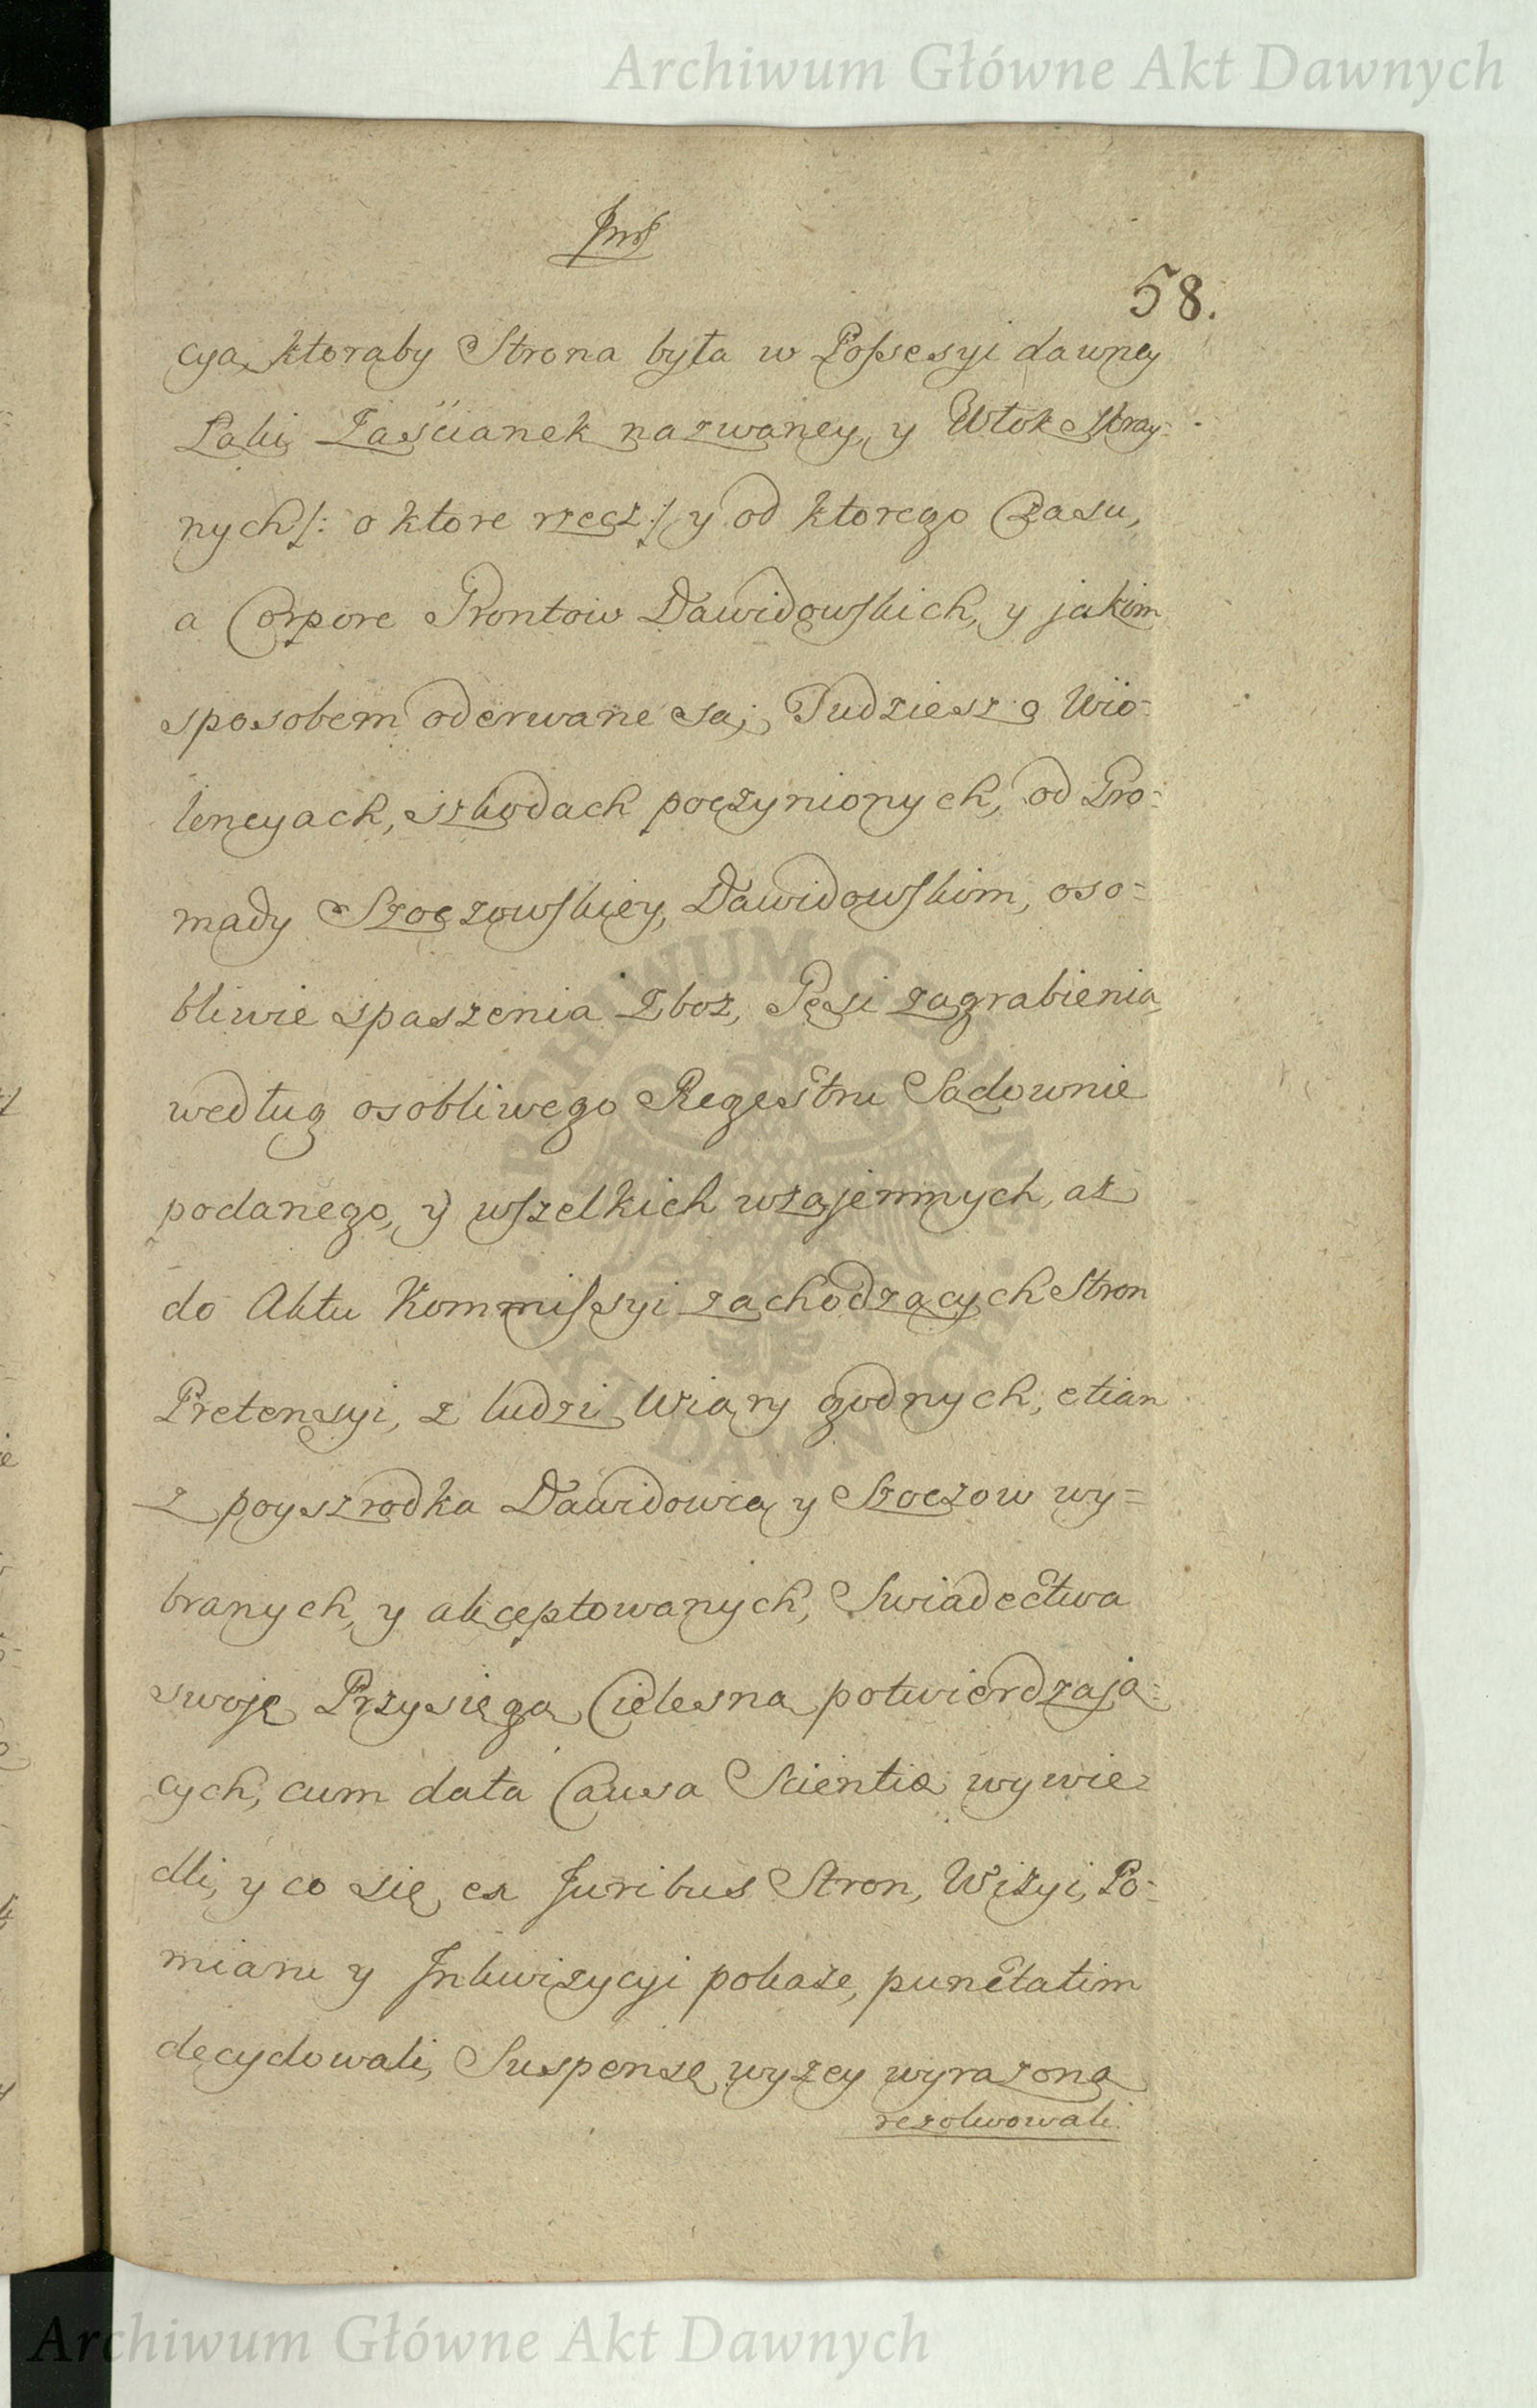 Archiwum Główne Akt Dawnych
58.
cyą, ktoraby Strona była w Possesyi dawney
Łąki Zaścianek nazwaney, y Włok Skray-
nych /: o ktore rzecz :/ y od ktorego Czasu,
a Corpore Grontow Dawidowskich, y jakim
sposobem oderwane są; Tudziesz o Wio-
lencyach, szkodach poczynionych, od Gro-
mady Szoczowskiey, Dawidowskim, oso-
bliwie spaszenia Zboz, Gęsi zagrabienia,
według osobliwego Regestru Sądownie
podanego, y wszelkich wzajemnych, az
do Aktu Kommissyi zachodzących Stron
Pretensyi, z ludzi Wiary godnych, etiam
z poyszrodka Dawidowa y Szoczow wy-
branych, y akceptowanych, Swiadectwa
swoje Przysięgą Cielesną potwierdzają-
cych, cum data Causa Scientiæ wywie-
dli, y co się ex Juribus Stron, Wizyi, Po-
miaru y Inkwizycyi pokaze, punctatim
decydowali, Suspensę wyzey wyrazoną
rezolwowali.
ARCHIWUM GŁÓWNE AKT DAWNYCH
Archiwum Główne Akt Dawnych